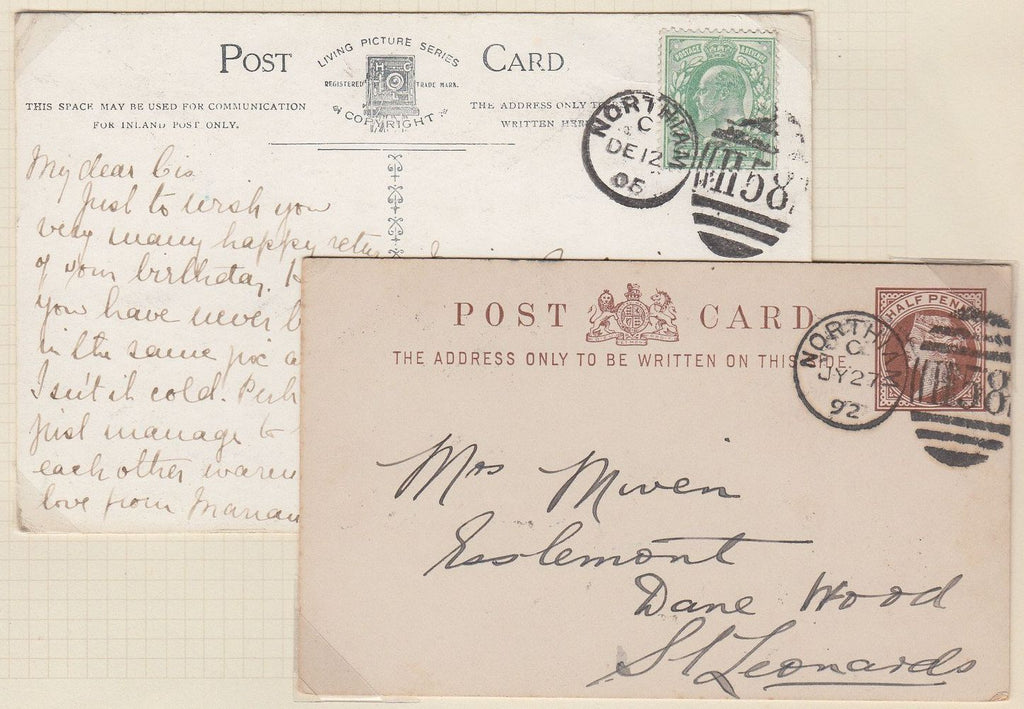 POST CARD
LIVING PICTURE SERIES
H C
REGISTERED TRADE MARK.
COPYRIGHT
THIS SPACE MAY BE USED FOR COMMUNICATION
FOR INLAND POST ONLY.
THE ADDRESS ONLY T
WRITTEN HERE
POSTAGE & REVENUE
NORTHAM
C
DE 12
05
My dear Cis
Just to wish you
very many happy retu
of your birthday.
you have never b
in the same
Isn't it cold. Perh
just manage to
each other warm
love from
POST CARD
THE ADDRESS ONLY TO BE WRITTEN ON THIS SIDE.
HALF PENNY
NORTHAM
C
JY 27
92
Mrs
Esslemont
Dane Wood
St Leonards